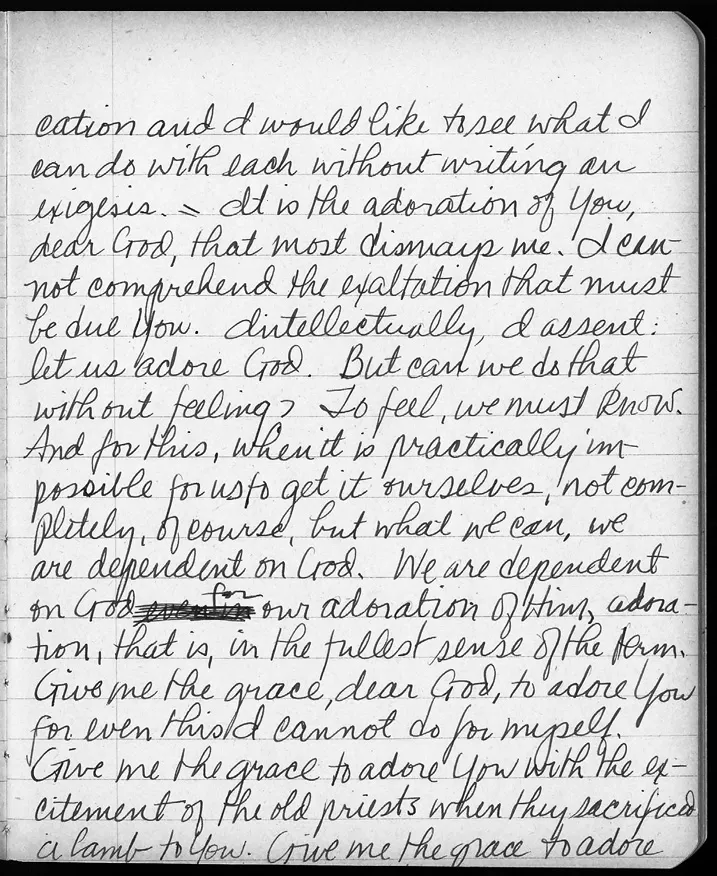 cation and I would like to see what I
can do with each without writing an
exigesis. = It is the adoration of You,
dear God, that most dismays me. I can-
not comprehend the exaltation that must
be due You. Intellectually, I assent:
let us adore God. But can we do that
without feeling? To feel, we must know.
And for this, when it is practically im-
possible for us to get it ourselves, not com-
pletely, of course, but what we can, we
are dependent on God. We are dependent
on God even in for our adoration of Him, adora-
tion, that is, in the fullest sense of the term.
Give me the grace, dear God, to adore You
for even this I cannot do for myself.
Give me the grace to adore You with the ex-
citement of the old priests when they sacrificed
a lamb to You. Give me the grace to adore